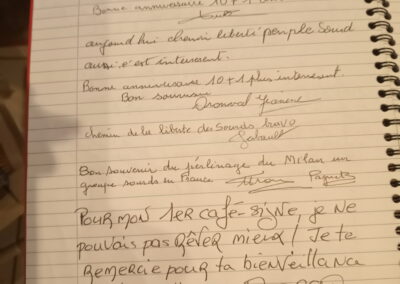 Bonne anniversaire 10 + 1
aujourd'hui chemin liberté peuple Sourd
aussi, c'est interessent.
Bonne anniversaire 10 + 1 plus interessent.
Bon souvenir
chemin de la liberte des Sourds bravo
Bon souvenir du pélinage du Milan un
groupe sourds en France
POUR MON 1ER CAFÉ-SIGNE, je NE
pouvais pas RÊVER mieux! Je te
REMERCIE POUR ta bienveillance